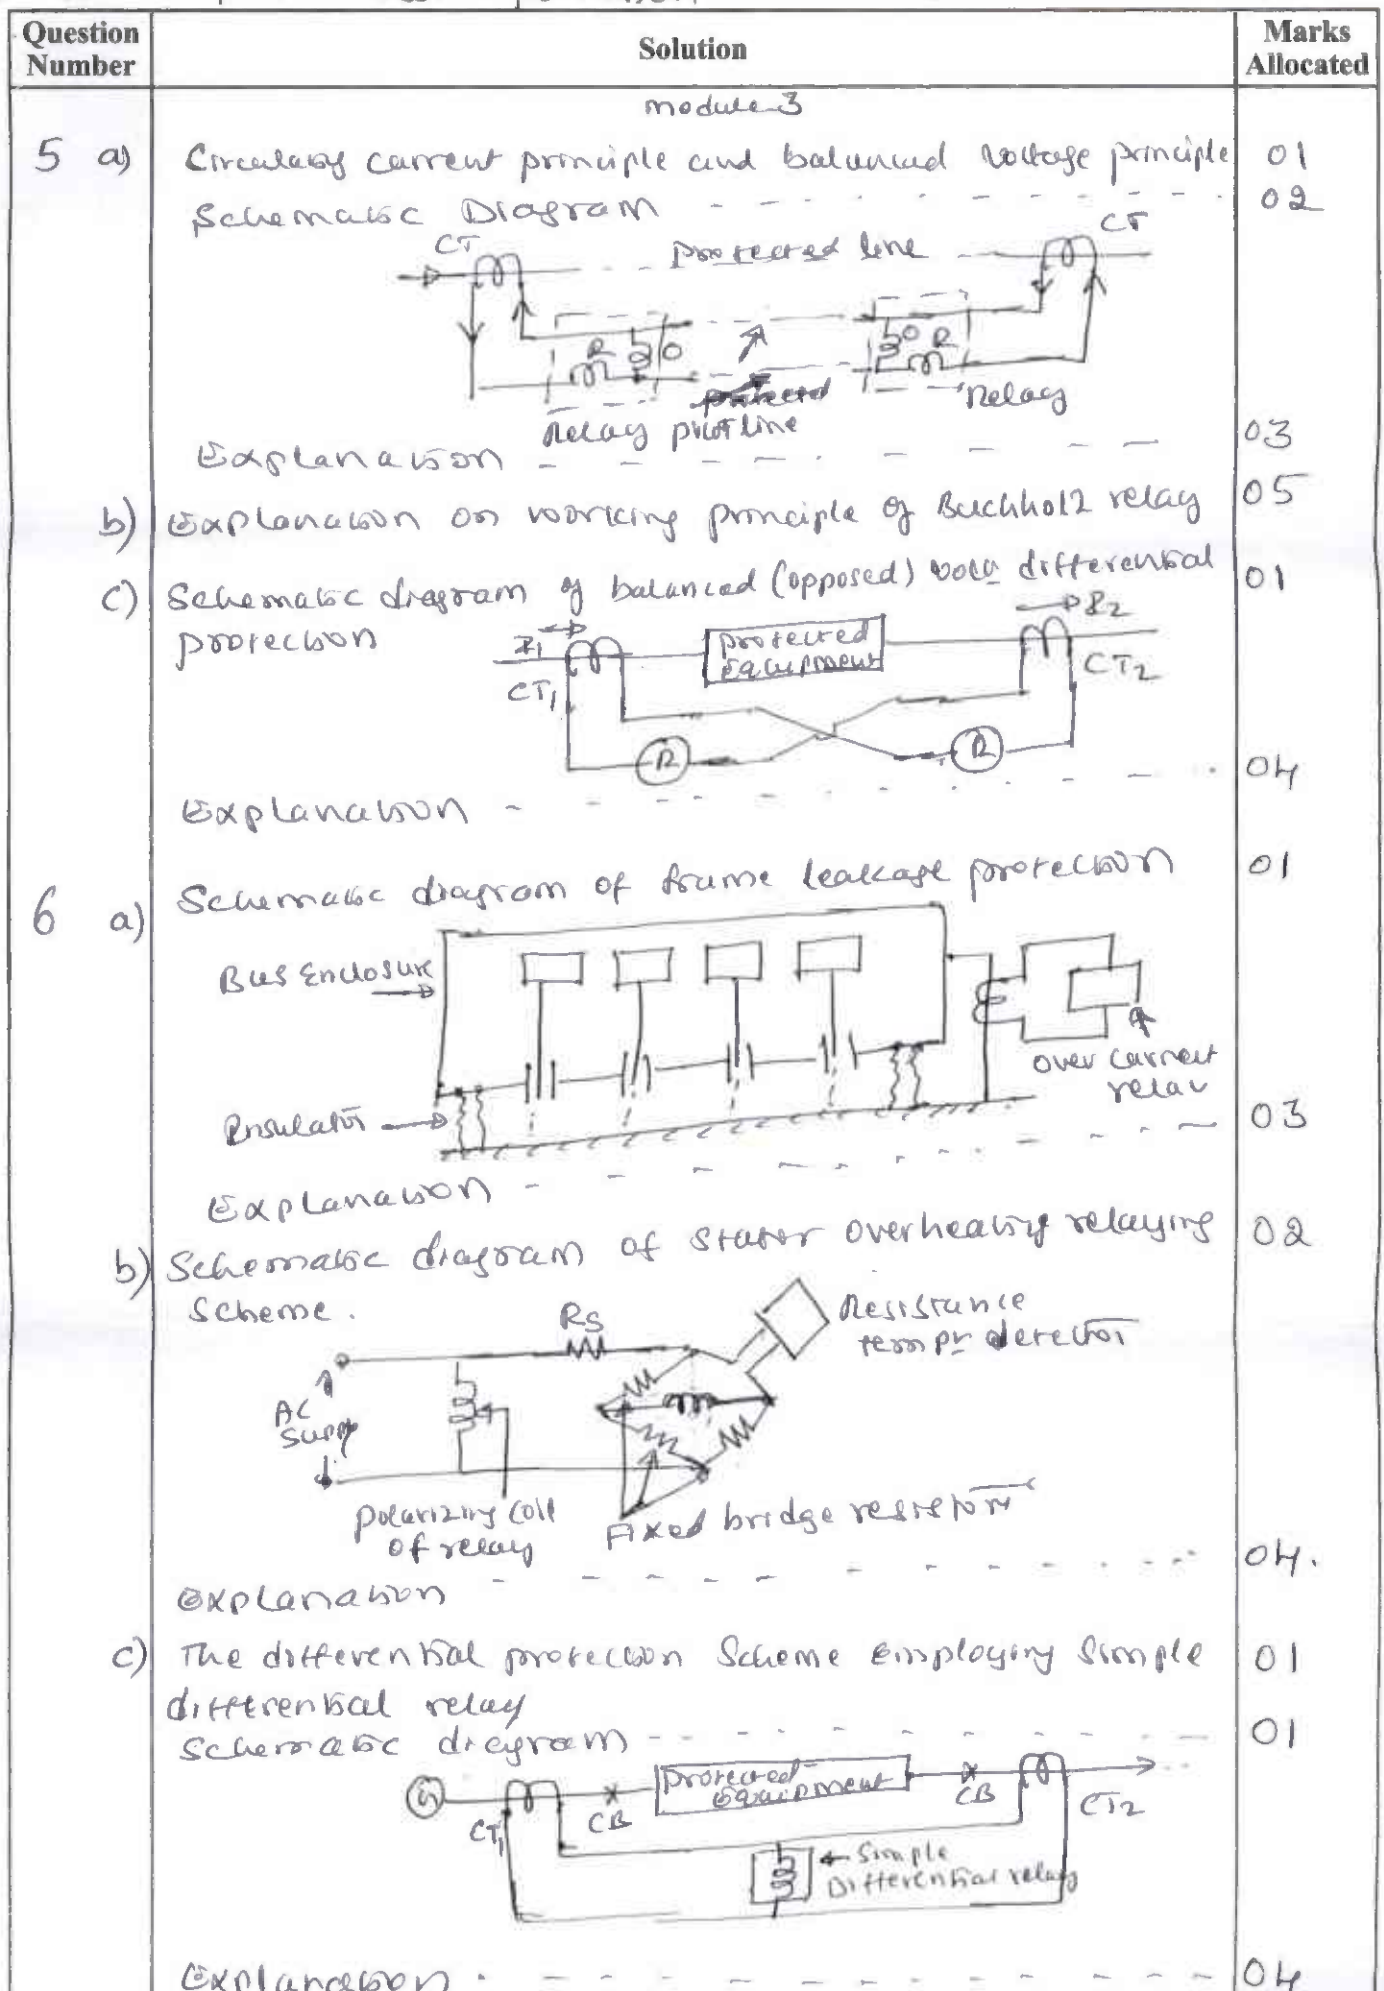 Question Number
Solution
Marks Allocated
module-3
5 a) Circulating current principle and balanced voltage principle 01
Schematic Diagram 02
CT
protected line
CT
R
O
O
R
Relay
pilot line
Relay
Explanation 03
b) Explanation on working principle of Buchholz relay 05
c) Schematic diagram of balanced (opposed) voltg differential 01
protection
I1
I2
protected
Equipment
CT1
CT2
R
R
Explanation 04
6 a) Schematic diagram of frame leakage protection 01
Bus Enclosure
over current
relay
Insulator
03
Explanation
b) Schematic diagram of stator overheating relaying 02
scheme.
RS
Resistance
tempr detector
AC
Supply
polarizing coil
of relay
Fixed bridge resistors
04.
Explanation
c) The differential protection Scheme Employing simple 01
differential relay
Schematic diagram 01
G
CT1
CB
protected
Equipment
CB
CT2
Simple
Differential relay
Explanation. 04